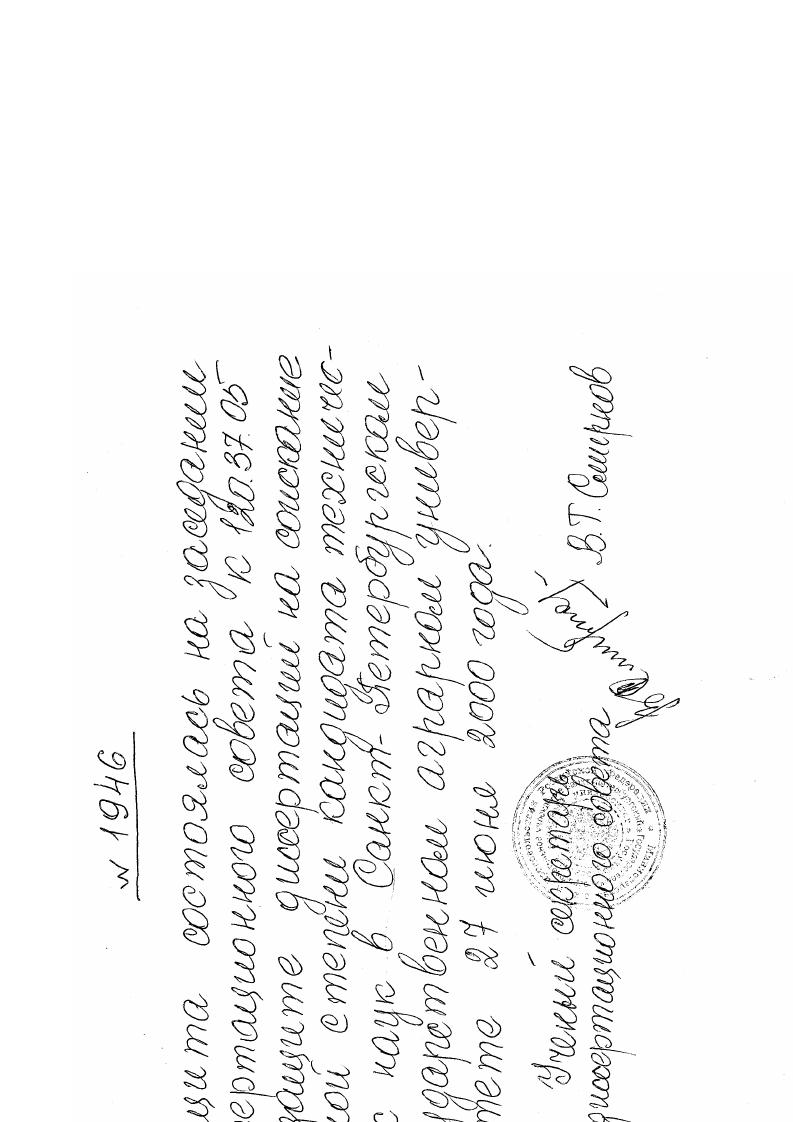 w 1946
щита состоялась на заседании
ертационного совета К 120.37.05
защите диссертаций на соискание
ой степени кандидата техничес-
х наук в Санкт-Петербургском
ударственном аграрном универ-
тете 27 июня 2000 года.
Ученый секретарь
диссертационного совета В.Т. Смирнов